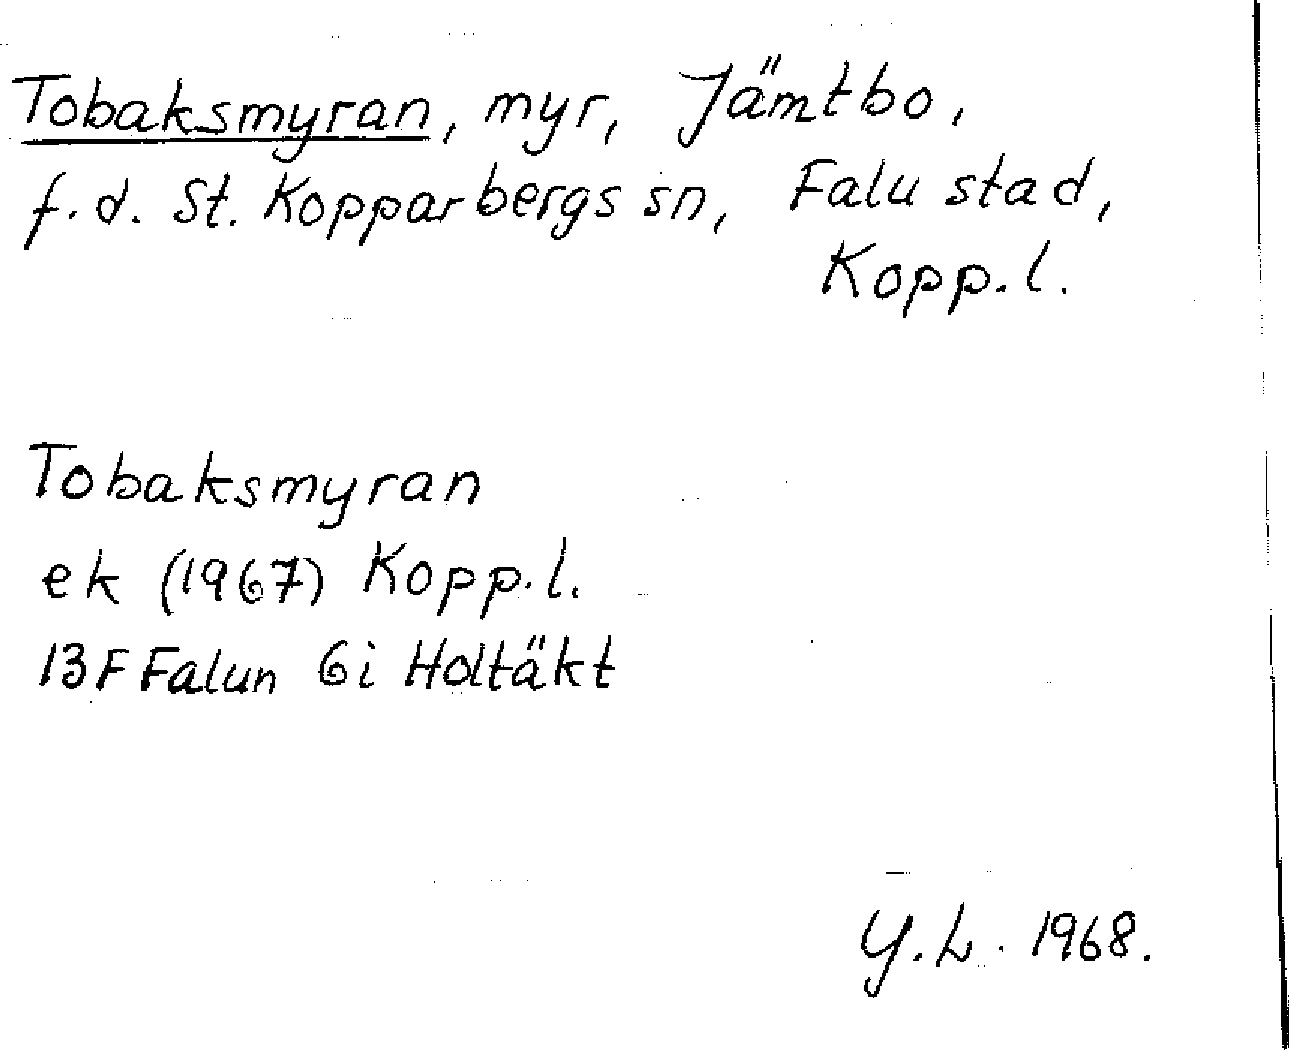 Tobaksmyran, myr, Jämtbo,
f.d. St. Kopparbergs sn, Falu stad,
Kopp.l.
Tobaksmyran
ek (1967) Kopp.l.
13F Falun 6i Holtäkt
Y.L. 1968.